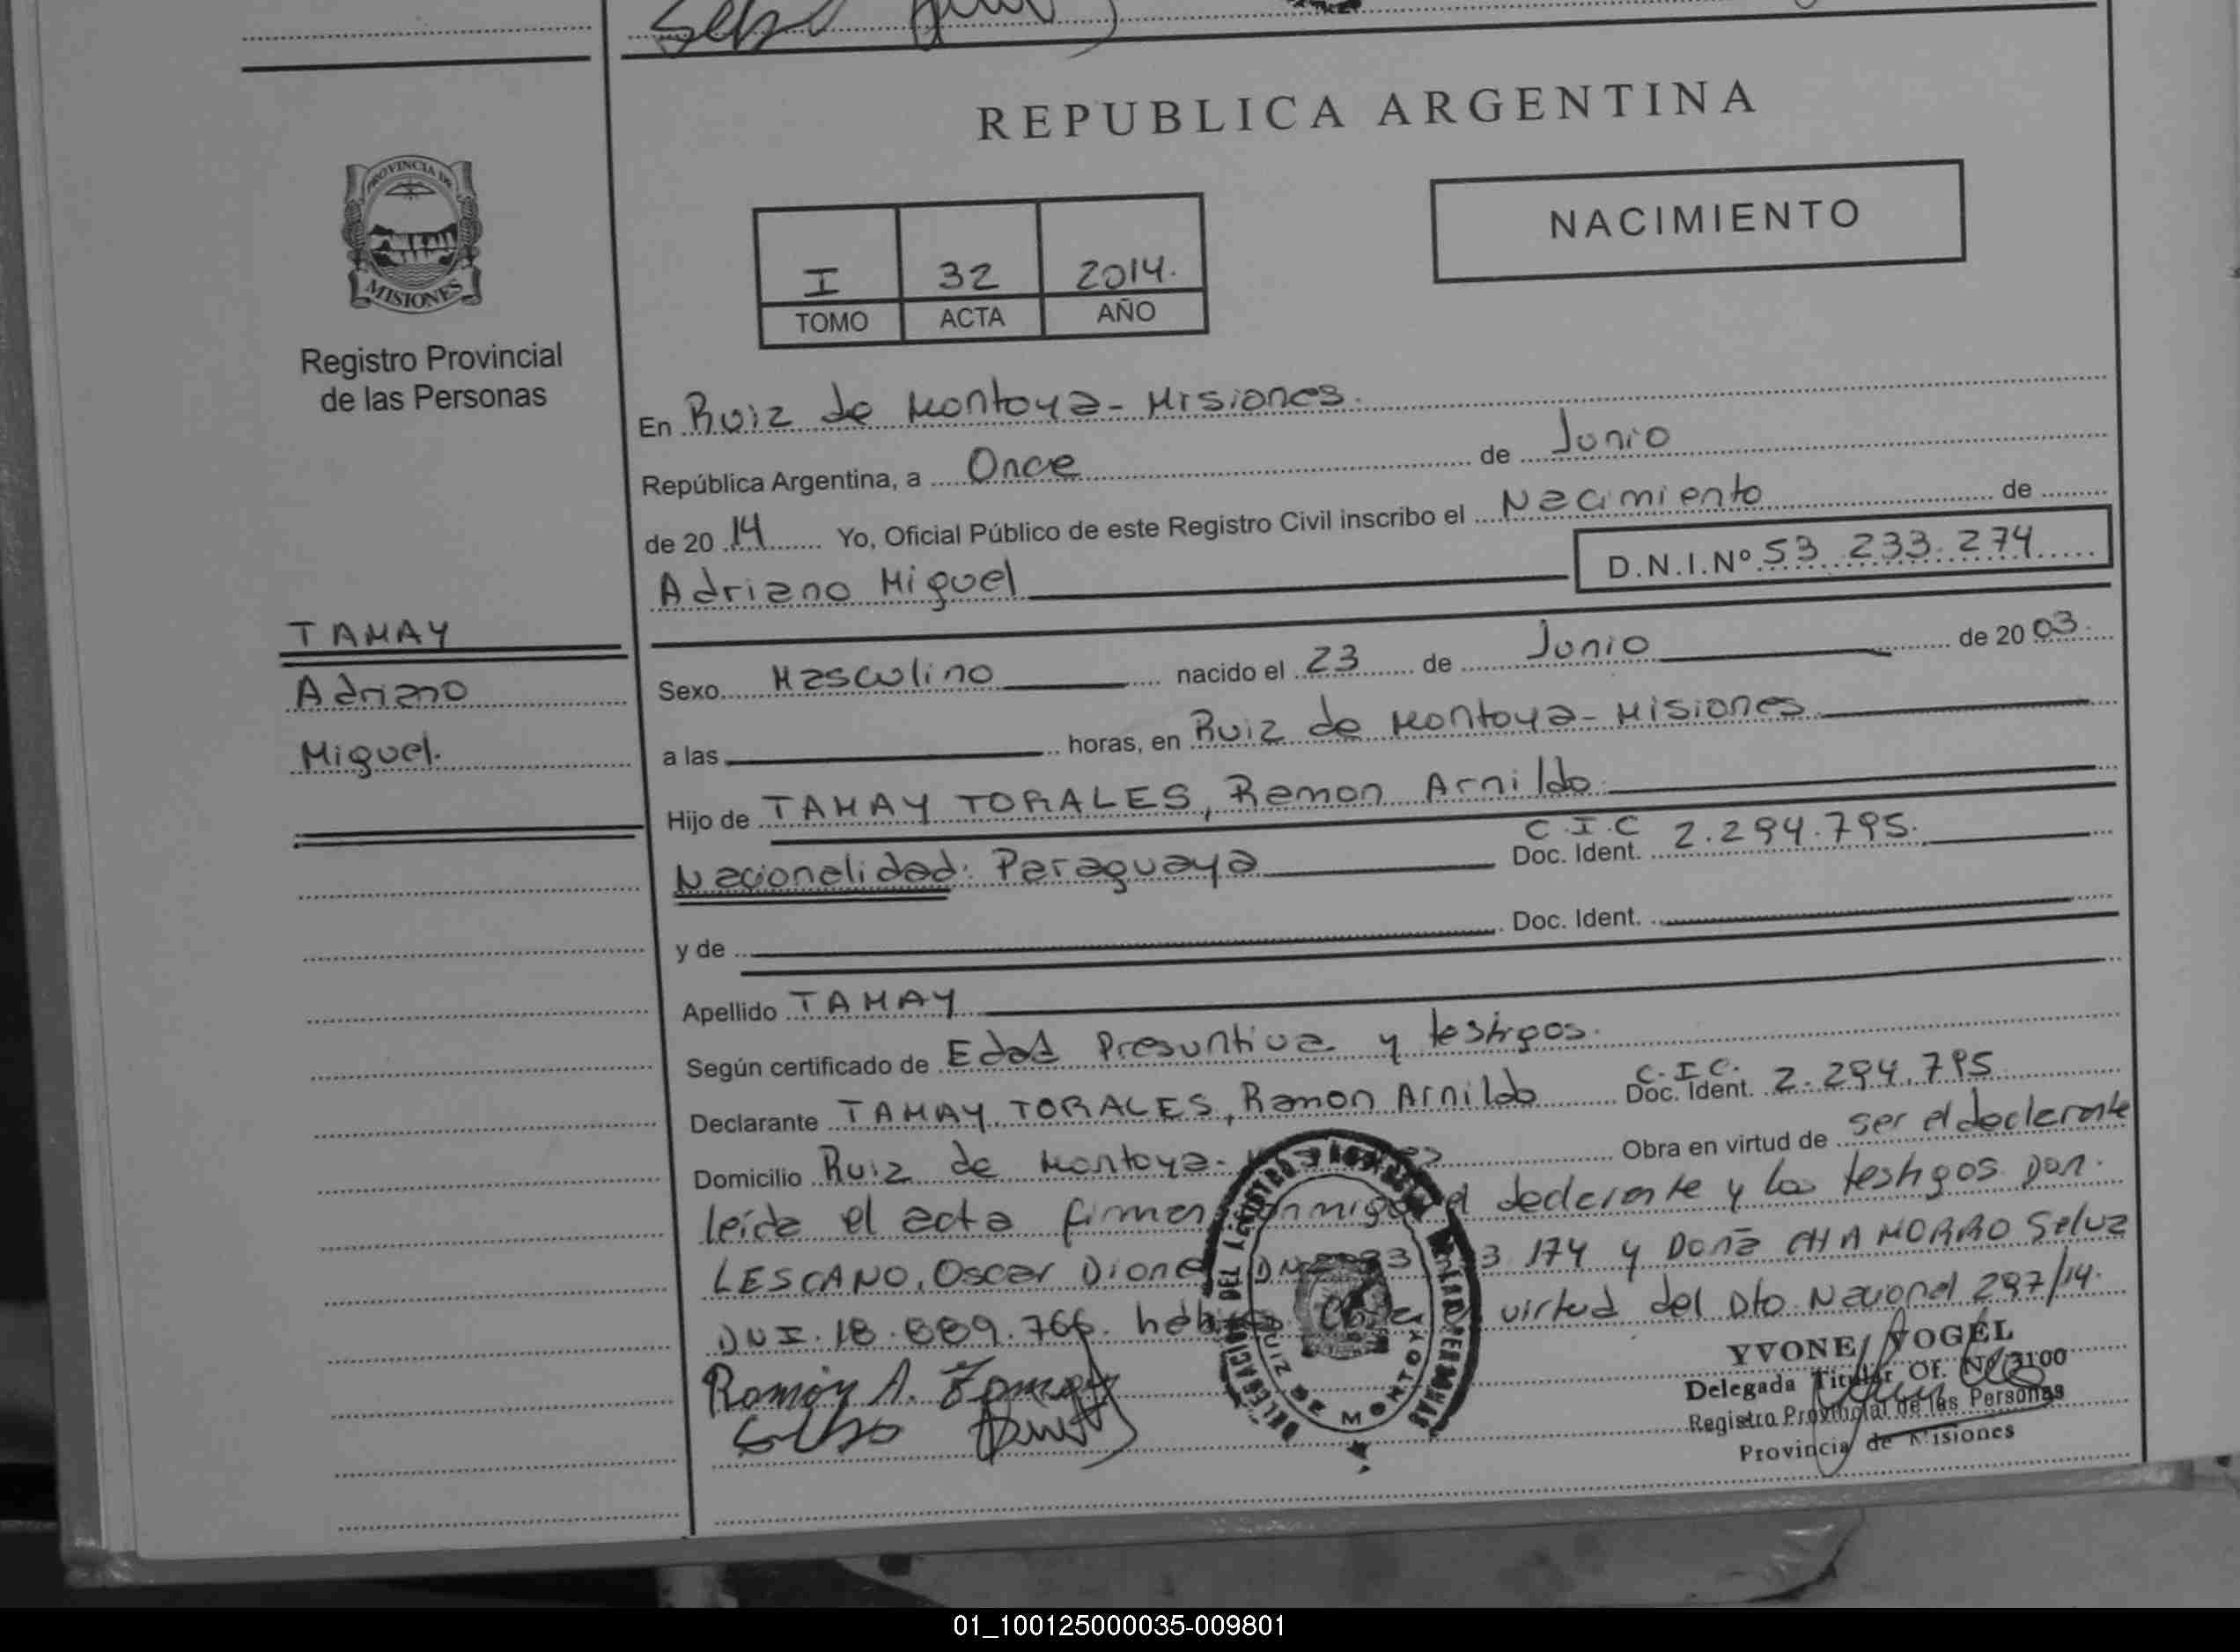 REPUBLICA ARGENTINA
PROVINCIA DE
MISIONES
Registro Provincial
de las Personas
NACIMIENTO
I 32 2014.
TOMO ACTA AÑO
En Ruiz de Montoya - Misiones.
República Argentina, a Once de Junio
de 20 14 Yo, Oficial Público de este Registro Civil inscribo el Nacimiento de
D.N.I.Nº 53.233.274
Adriano Miguel
TAMAY
Adriano
Miguel.
Sexo Masculino nacido el 23 de Junio de 20 03.
a las horas, en Ruiz de Montoya - Misiones
Hijo de TAMAY TORALES, Ramon Arnildo
Nacionalidad: Paraguaya C.I.C Doc. Ident. 2.294.795.
y de Doc. Ident.
Apellido TAMAY
Según certificado de Edad Presuntiva y testigos.
Declarante TAMAY TORALES, Ramon Arnildo C.I.C. Doc. Ident. 2.294.795
Domicilio Ruiz de Montoya - Obra en virtud de ser el declarante
leída el acta firman conmigo el declarante y los testigos Don.
LESCANO, Oscar 174 y Doña CHAMORRO
DNI. 18.889.766. virtud del Dto Nacional 297/14.
Ramón A. Tamay
YVONE VOGEL
Delegada Titular Of. Nº 3100
Registro Provincial de las Personas
Provincia de Misiones
RUIZ DE MONTOYA
01_100125000035-009801